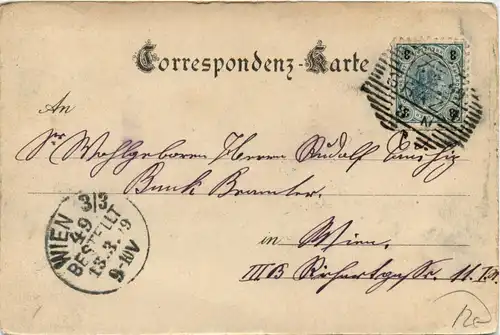 Correspondenz-Karte
3 3
An
Sr Wohlgeboren Herrn Rudolf
3 3
Bank Beamter.
in Wien.
III/B 11.
WIEN 3/3
49
BESTELLT
13.3.99
9-10V